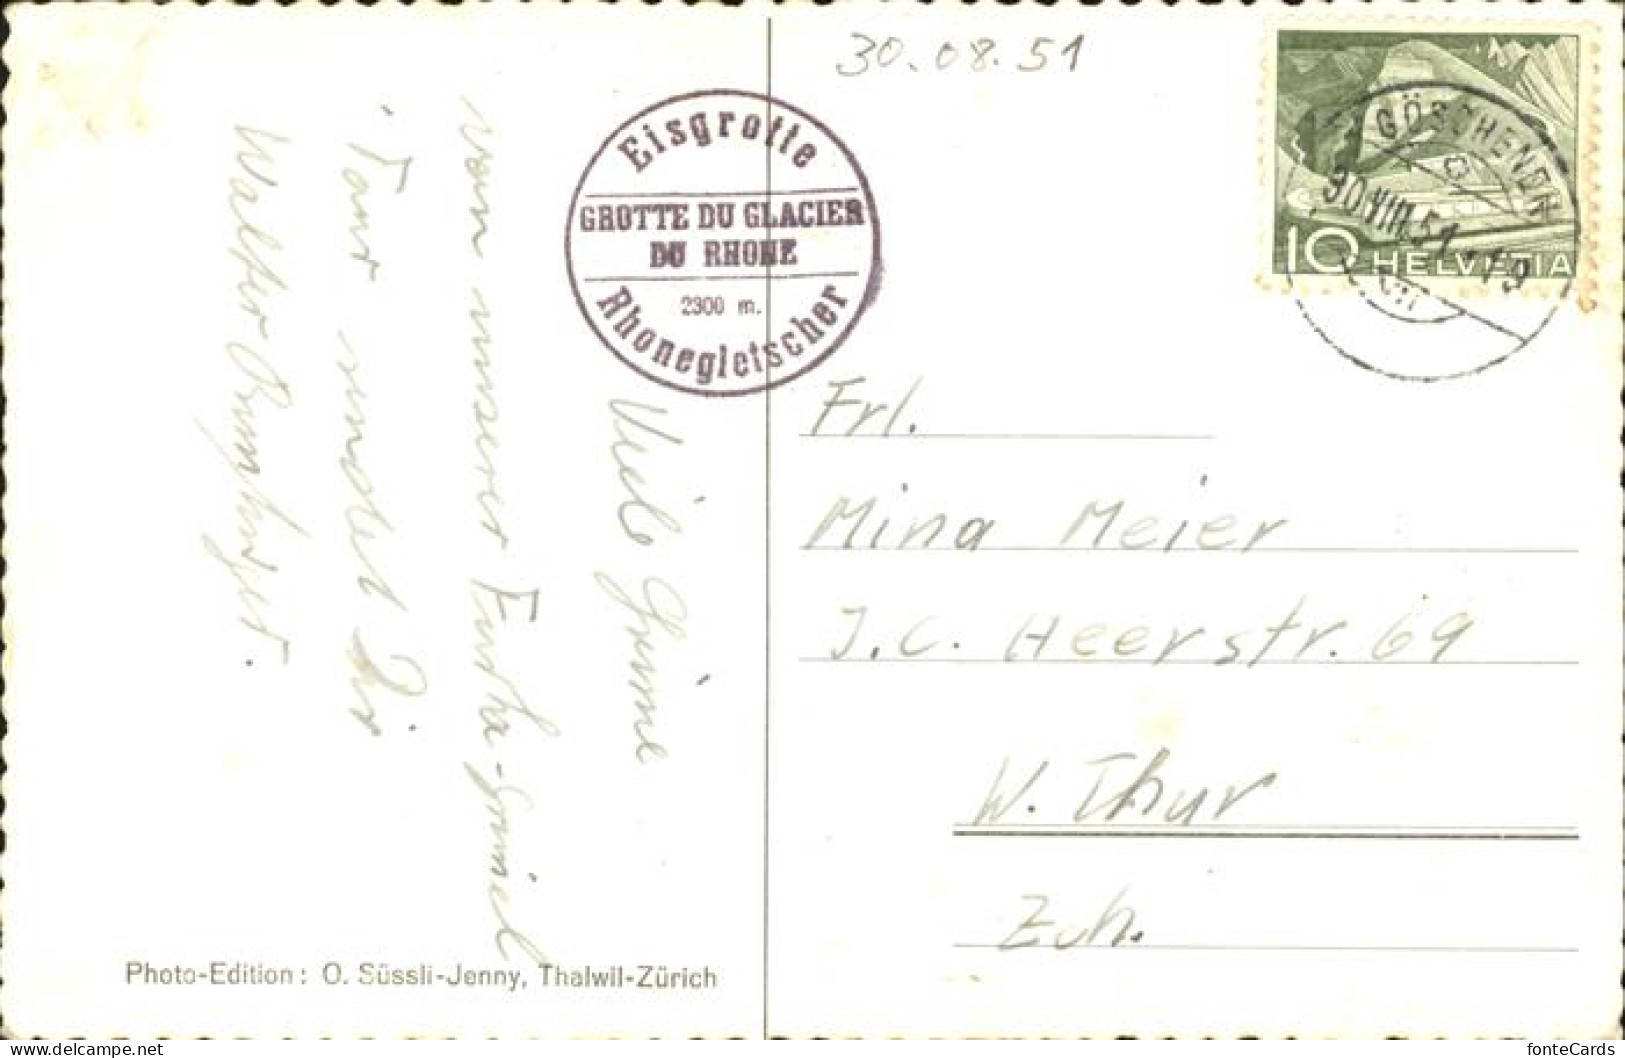 30.08.51
Eisgrotte
GROTTE DU GLACIER
DU RHONE
2300 m.
Rhonegletscher
GÖSCHENEN
30.VIII.51-19
10 HELVETIA
Viele Grüsse
von unserer Furka-Grimsel
Tour sendet Dir
Walter
Frl.
Mina Meier
J.C. Heerstr. 69
W. Thur
Zch.
Photo-Edition: O. Süssli-Jenny, Thalwil-Zürich
fonteCards
www.delcampe.net